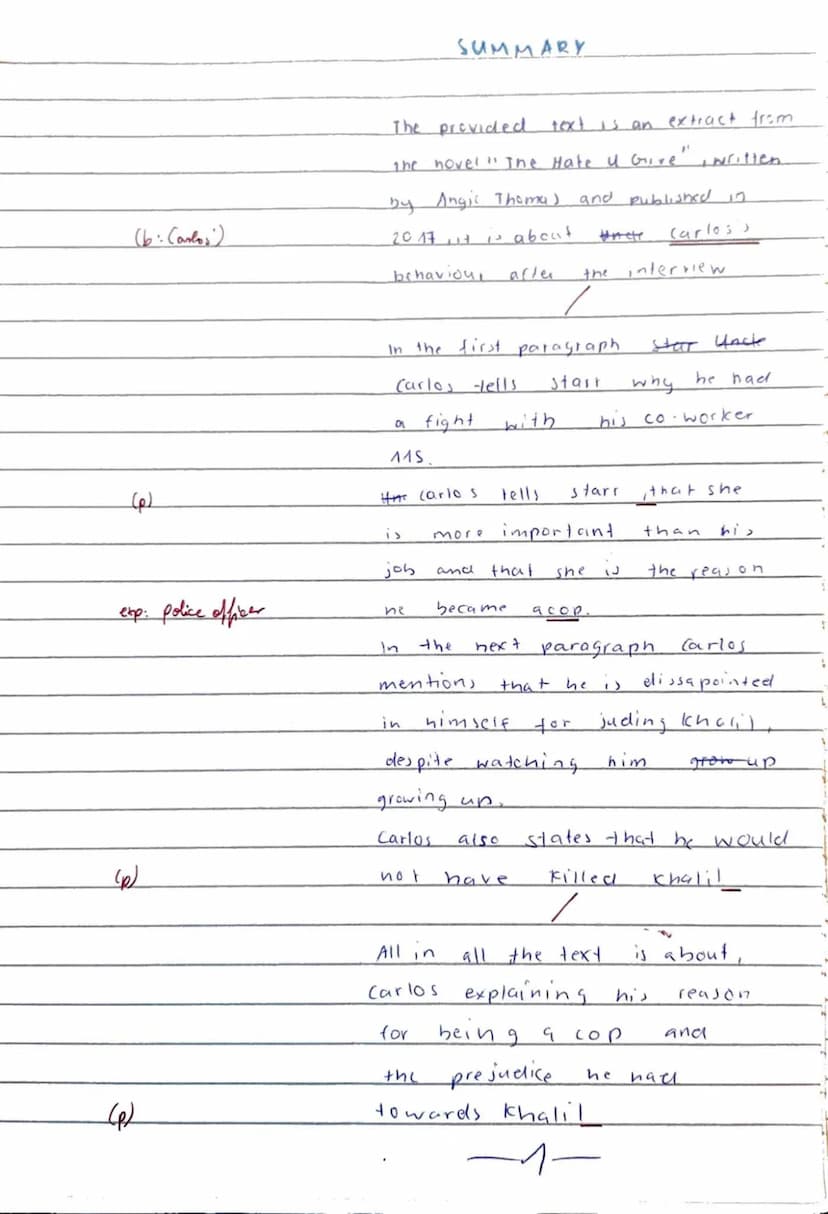 SUMMARY
The provided text is an extract from
the novel "The Hate U Give", written
by Angie Thomas and published in
(b: Carlos') 2017, it is about Uncle Carlos's
behaviour after the interview
In the first paragraph Star Uncle
Carlos tells Starr why he had
a fight with his co-worker
115.
(p) Carlos tells starr, that she
is more important than his
job and that she is the reason
exp: police officer he became a cop.
In the next paragraph Carlos
mentions that he is dissapointed
in himself for juding Khalil,
despite watching him grow up
growing up.
Carlos also states that he would
(p) not have killed Khalil
All in all the text is about,
Carlos explaining his reason
for being a cop and
the prejudice he had
(p) towards Khalil